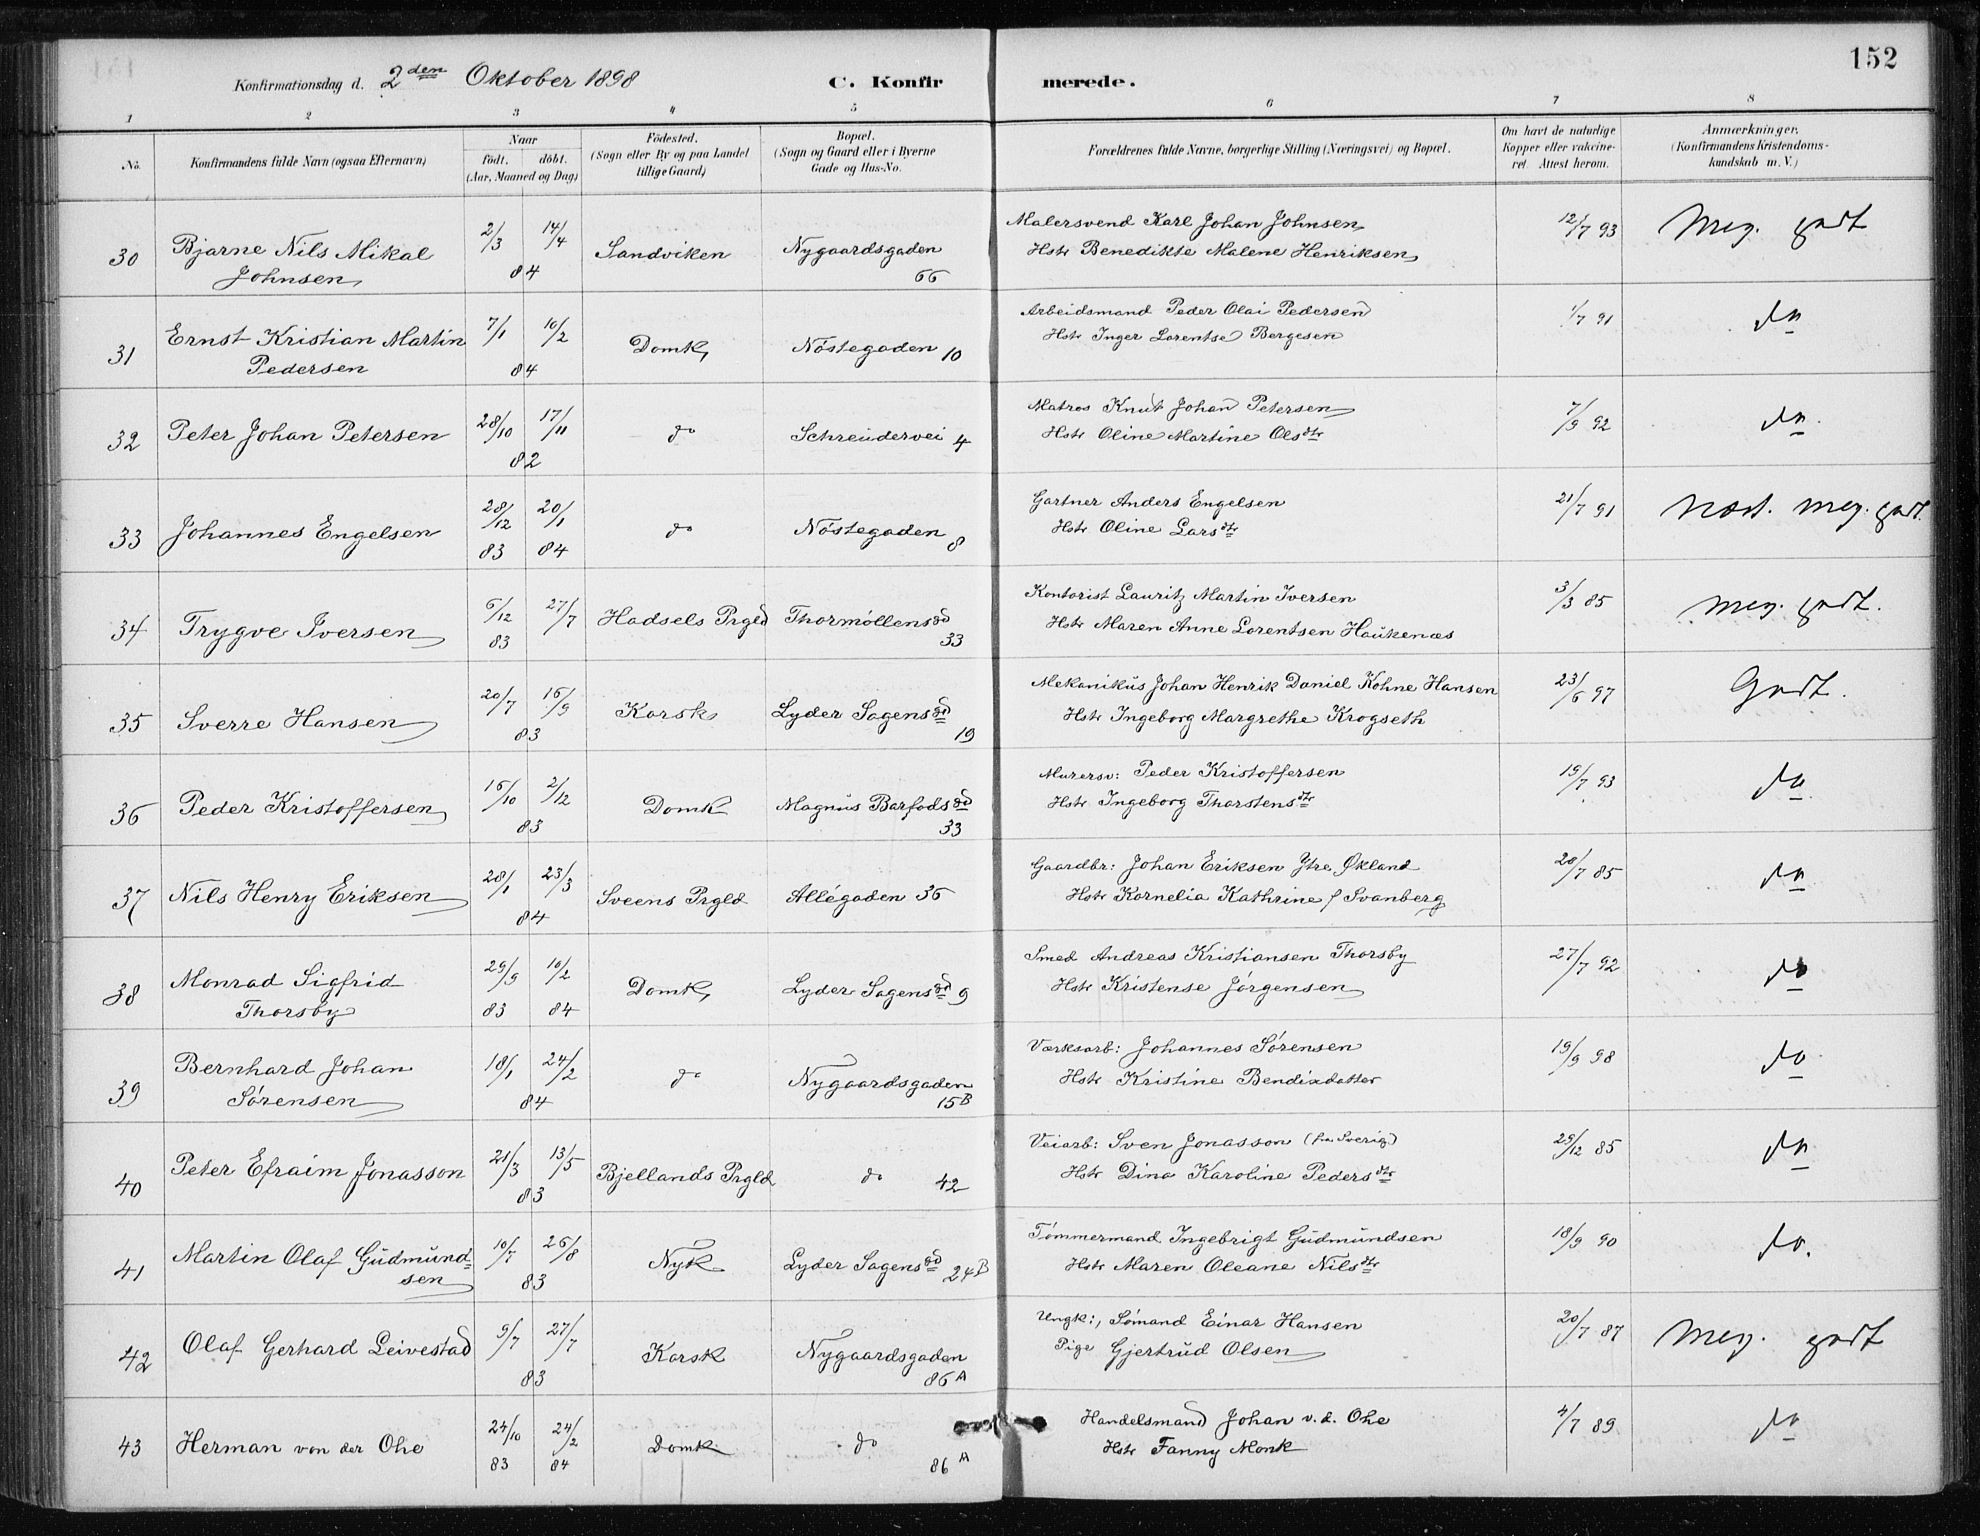 152
Konfirmationsdag d. 2den Oktober 1898 C. Konfirmerede.
1 2 3 4 5 6 7 8
No. Konfirmandens fulde Navn (ogsaa Efternavn) Naar født. døbt. (Aar, Maaned og Dag) Fødested. (Sogn eller By og paa Landet tillige Gaard) Bopæl. (Sogn og Gaard eller i Byerne Gade og Hus-No. Forældrenes fulde Navne, borgerlige Stilling (Næringsvei) og Bopæl. Om havt de naturlige Kopper eller vakcineret. Attest herom. Anmærkninger. (Konfirmandens Kristendomskundskab m. V.)
30 Bjarne Nils Mikal 2/3 14/4 Sandviken Nygaardsgaden Malersvend Karl Johan Johnsen 12/7 93 Meg. godt
Johnsen 84 66 Hstr Benedikte Malene Henriksen
31 Ernst Kristian Martin 7/1 10/2 Domk Nøstegaden 10 Arbeidsmand Peder Olai Pedersen 1/7 91 do
Pedersen 84 Hstr Inger Lorentse Bergesen
32 Peter Johan Petersen 28/10 17/11 do Schreudervei 4 Matros Knut Johan Petersen 7/9 92 do.
82 Hstr Oline Martine Olsdtr
33 Johannes Engelsen 28/12 20/1 do Nøstegaden 8 Gartner Anders Engelsen 21/7 91 Næst. meg. godt.
83 84 Hstr Oline Larsdtr
34 Trygve Iversen 6/12 27/7 Hadsels Prgld Thormøllensgd Kontorist Lauritz Martin Iversen 3/3 85 Meg. godt.
83 33 Hstr Maren Anne Lorentsen Haukenæs
35 Sverre Hansen 20/7 16/9 Korsk Lyder Sagensgd Mekanikus Johan Henrik Daniel Kohne Hansen 23/6 97 Godt.
83 19 Hstr Ingeborg Margrethe Krogseth
36 Peder Kristoffersen 16/10 2/12 Domk Magnus Barfodsgd Murersv: Peder Kristoffersen 19/7 93 do
83 33 Hstr Ingeborg Thorstensdtr
37 Nils Henry Eriksen 28/1 23/3 Sveens Prgld Allégaden 36 Gaardbr: Johan Eriksen Ytre Økland 20/7 85 do
84 Hstr Kornelia Kathrine f Svanberg
38 Monrad Sigfrid 29/9 10/2 Domk Lyder Sagensgd 9 Smed Andreas Kristiansen Thorsby 27/7 92 do
Thorsby 83 84 Hstr Kristense Jørgensen
39 Bernhard Johan 18/1 24/2 do Nygaardsgaden Værksarb: Johannes Sørensen 19/9 98 do
Sørensen 84 15B Hstr Kristine Bendixdatter
40 Peter Efraim Jonasson 21/3 13/5 Bjellands Prgld do 42 Veiarb: Sven Jonasson (fra Sverig) 29/12 85 do
83 Hstr Dina Karoline Pedersdtr
41 Martin Olaf Gudmund- 10/7 26/8 Nyk Lyder Sagensgd 24B Tømmermand Ingebrigt Gudmundsen 18/9 90 do.
sen 83 Hstr Maren Oleane Nilsdtr
42 Olaf Gerhard Leivestad 9/7 27/7 Korsk Nygaardsgaden Ungk:, Sømand Einar Hansen 20/7 87 Meg. godt
83 86A Pige Gjertrud Olsen
43 Herman von der Ohe 24/10 24/2 Domk do Handelsmand Johan v. d. Ohe 4/7 89 do
83 84 86A Hstr Fanny Monk